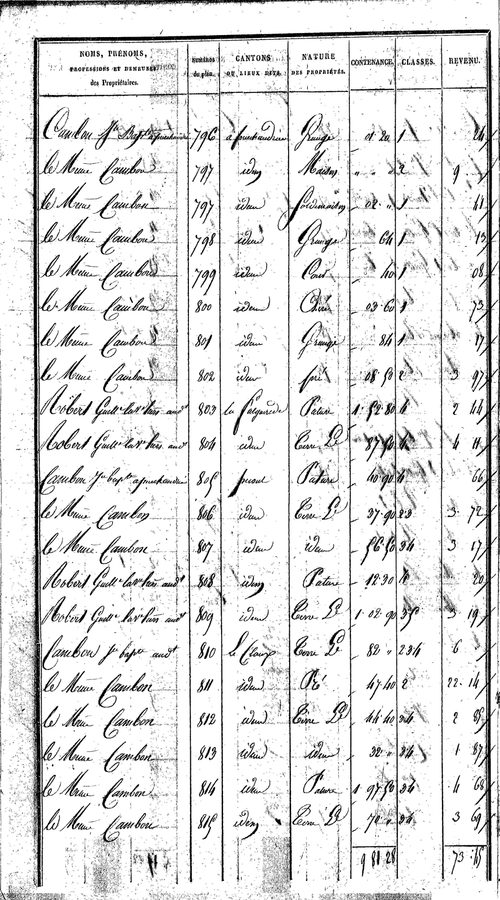 NOMS, PRÉNOMS, PROFESSIONS ET DEMEURES des Propriétaires. NUMÉROS du plan. CANTONS OU LIEUX DITS. NATURE DES PROPRIÉTÉS. CONTENANCE. CLASSES. REVENU.
Cambon Jn Bapte 796 Grange 01 20 1 24
le Même Cambon 797 idem Maison " " " 2 9 "
le Même Cambon 797 idem Sol de maison 02 " 1 41
le Même Cambon 798 idem Grange 64 1 13
le Même Cambon 799 idem Cour 40 1 08
le Même Cambon 800 idem 03 60 1 73
le Même Cambon 801 idem Grange 84 1 17
le Même Cambon 802 idem pré 08 50 2 3 97
Robert 803 Pature 1 52 80 4 2 44
Robert 804 idem Terre Le 87 50 4 11
Cambon Jn bapte 805 Pature 40 90 4 66
le Même Cambon 806 idem Terre Le 37 90 23 3 72
le Même Cambon 807 idem idem 56 50 34 3 17
Robert 808 idem Pature 12 30 4 20
Robert 809 idem Terre Le 1 02 90 35 3 19
Cambon Jn bapte 810 Terre Le 82 " 234 6 "
le Même Cambon 811 idem Pé 47 40 2 22 14
le Même Cambon 812 idem Terre Le 44 40 34 2 85
le Même Cambon 813 idem idem 32 " 34 1 87
le Même Cambon 814 idem Pature 1 97 50 34 4 68
le Même Cambon 815 idem Terre Le 72 " 34 3 69
9 81 28 73 45